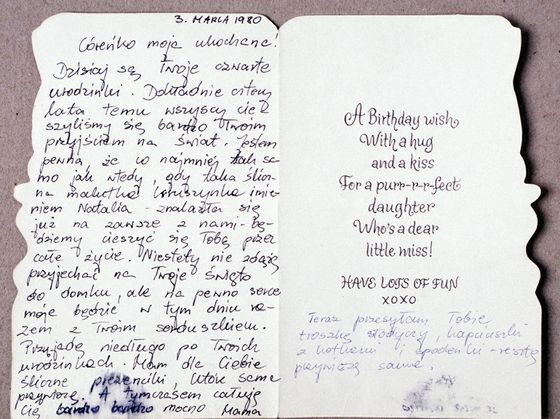 3. MARCA 1980
Córeńko moja ukochana!
Dzisiaj są Twoje czwarte
urodzinki. Dokładnie cztery
lata temu wszyscy cie-
szyliśmy się bardzo Twoim
przyjściem na świat. Jestem
pewna, że co najmniej tak sa-
mo jak wtedy, gdy taka ślicz-
na malutka kruszynka imie-
niem Natalia - znalazła się
już na zawsze z nami - bę-
dziemy cieszyć się Tobą przez
całe życie. Niestety nie zdążę
przyjechać na Twoje święto
do domku, ale na pewno serce
moje będzie w tym dniu ra-
zem z Twoim serduszkiem.
Przyjadę niedługo po Twoich
urodzinkach. Mam dla Ciebie
śliczne prezenciki, które sama
przywiozę. A tymczasem całuję
Cię bardzo bardzo mocno Mama
A Birthday wish
With a hug
and a kiss
For a purr-r-r-fect
daughter
Who's a dear
little miss!
HAVE LOTS OF FUN
XOXO
Teraz przesyłam Tobie
troszkę słodyczy, kapciuszki
z kotkami i spodenki - resztę
przywiozę sama.